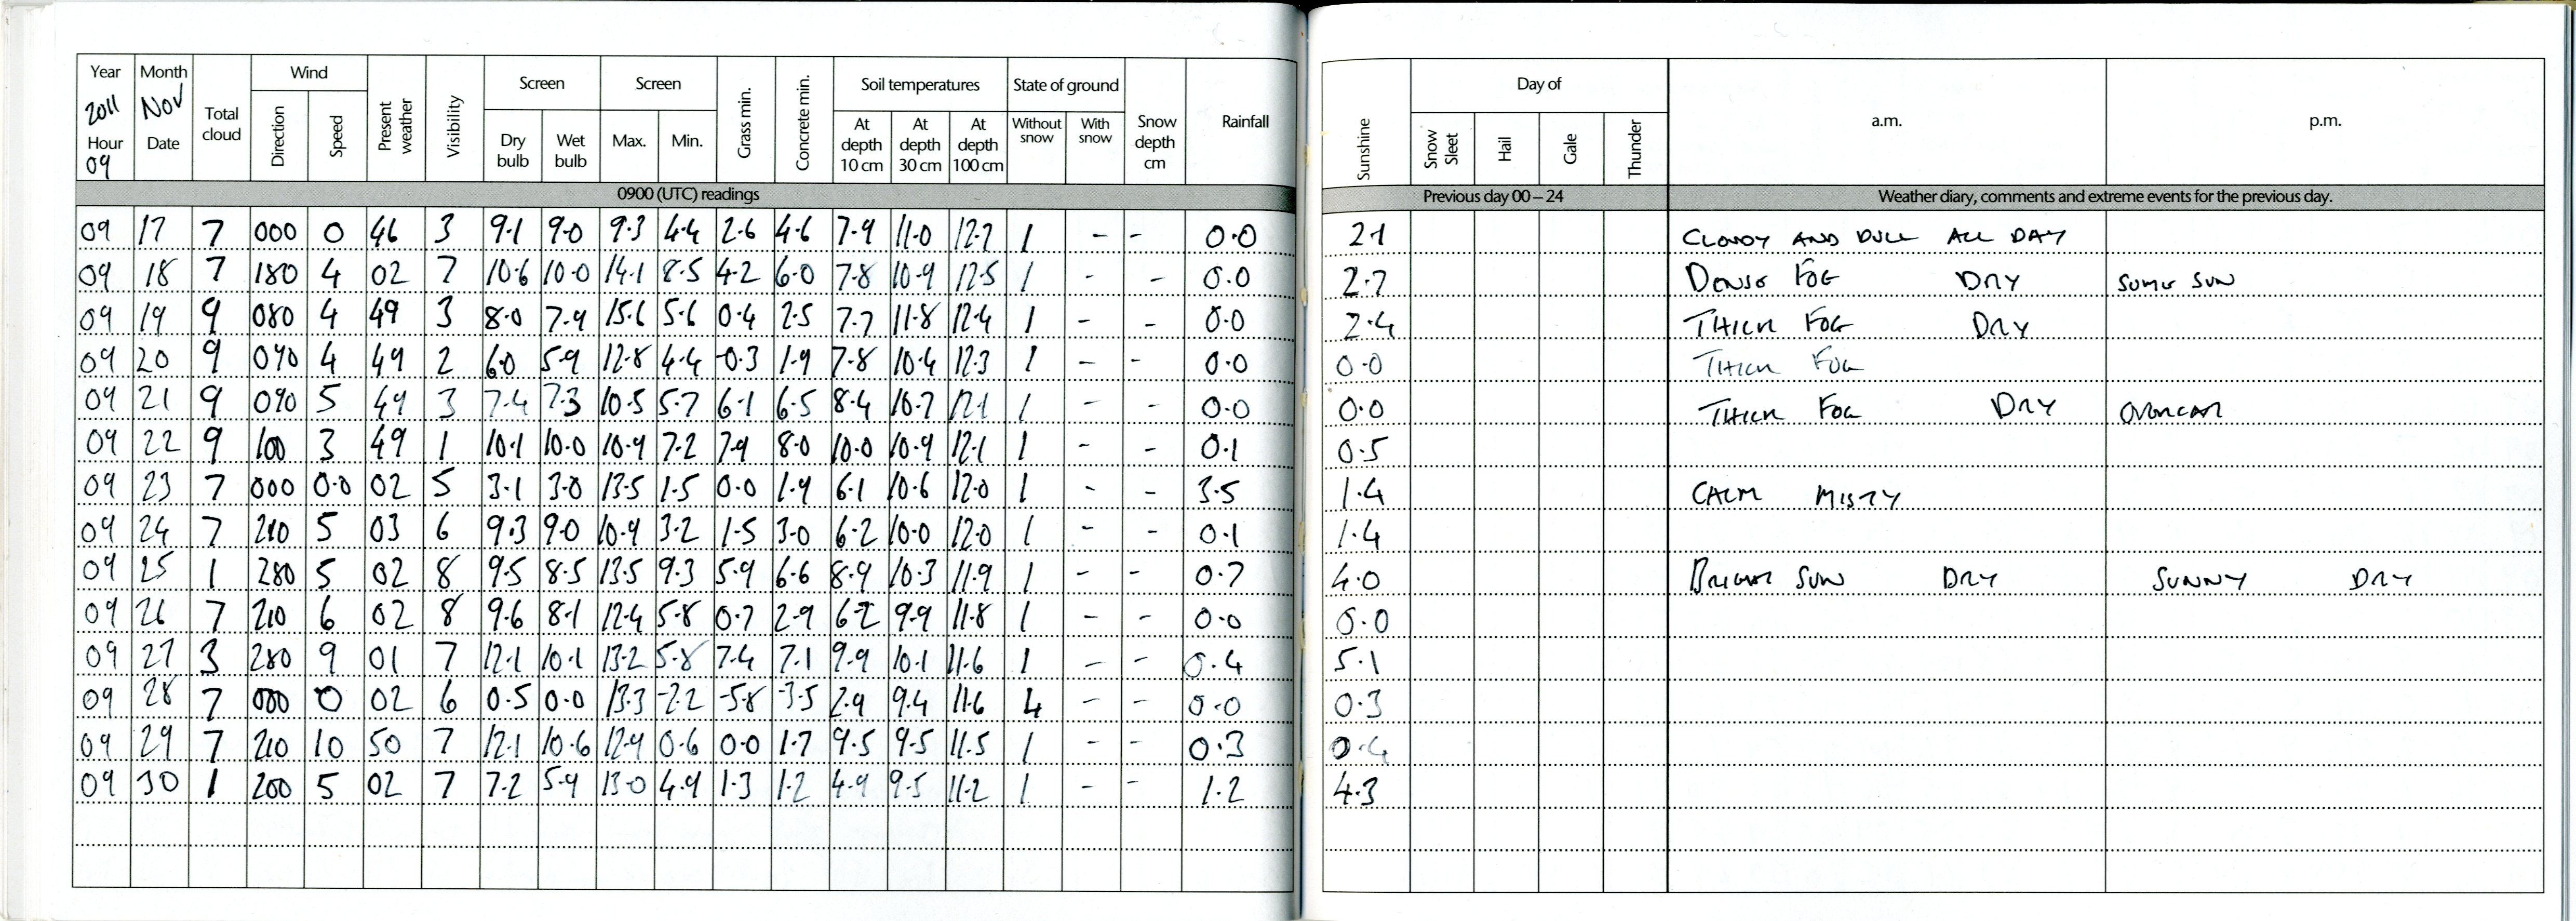 Year Month Total cloud Wind Present weather Visibility Screen Screen Grass min. Concrete min. Soil temperatures State of ground Snow depth cm Rainfall Sunshine Day of a.m. p.m.
2011 Nov Direction Speed Dry bulb Wet bulb Max. Min. At depth 10 cm At depth 30 cm At depth 100 cm Without snow With snow Snow Sleet Hail Gale Thunder
Hour Date
09
0900 (UTC) readings Previous day 00 – 24 Weather diary, comments and extreme events for the previous day.
09 17 7 000 0 46 3 9.1 9.0 9.3 4.4 2.6 4.6 7.9 11.0 12.7 1 - - 0.0 2.1 CLOUDY AND DULL ALL DAY
09 18 7 180 4 02 7 10.6 10.0 14.1 8.5 4.2 6.0 7.8 10.9 12.5 1 - - 0.0 2.7 DENSE FOG DRY SOME SUN
09 19 9 080 4 49 3 8.0 7.9 15.6 5.6 0.4 2.5 7.7 11.8 12.4 1 - - 0.0 2.4 THICK FOG DRY
09 20 9 090 4 49 2 6.0 5.9 12.8 4.4 -0.3 1.9 7.8 10.4 12.3 1 - - 0.0 0.0 THICK FOG
09 21 9 090 5 49 3 7.4 7.3 10.5 5.7 6.1 6.5 8.4 10.7 12.1 1 - - 0.0 0.0 THICK FOG DRY
09 22 9 100 3 49 1 10.1 10.0 10.9 7.2 7.9 8.0 10.0 10.9 12.1 1 - - 0.1 0.5
09 23 7 000 0.0 02 5 3.1 3.0 13.5 1.5 0.0 1.9 6.1 10.6 12.0 1 - - 3.5 1.4 CALM MISTY
09 24 7 210 5 03 6 9.3 9.0 10.9 3.2 1.5 3.0 6.2 10.0 12.0 1 - - 0.1 1.4
09 25 1 280 5 02 8 9.5 8.5 13.5 9.3 5.9 6.6 8.9 10.3 11.9 1 - - 0.7 4.0 BRIGHT SUN DRY SUNNY DRY
09 26 7 210 6 02 8 9.6 8.1 12.4 5.8 0.7 2.9 6.2 9.9 11.8 1 - - 0.0 0.0
09 27 3 280 9 01 7 12.1 10.1 13.2 5.8 7.4 7.1 9.9 10.1 11.6 1 - - 0.4 5.1
09 28 7 000 0 02 6 0.5 0.0 13.3 -2.2 -5.8 -3.5 2.9 9.4 11.6 4 - - 0.0 0.3
09 29 7 210 10 50 7 12.1 10.6 12.9 0.6 0.0 1.7 9.5 9.5 11.5 1 - - 0.3 0.4
09 30 1 200 5 02 7 7.2 5.9 13.0 4.9 1.3 1.2 4.9 9.5 11.2 1 - - 1.2 4.3